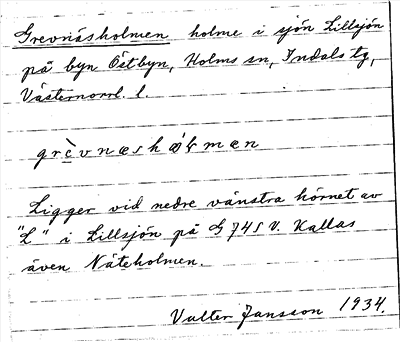 Grevnäsholmen holme i sjön Lillsjön
på byn Östbyn, Holms sn, Indals tg,
Västernorrl. l.
grèvnæsholmen
Ligger vid nedre vänstra hörnet av
"L" i Lillsjön på G 745 V. Kallas
även Näteholmen.
Valter Jansson 1934.